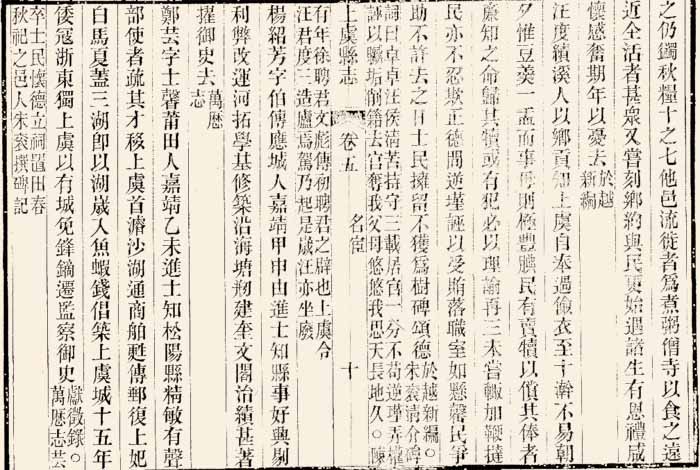 之仍蠲秋糧十之七他邑流徙者爲煮粥僧寺以食之遠
近全活者甚衆又嘗刻鄉約與民更始遇諸生有恩禮咸
懷感奮期年以憂去於越新編
汪度績溪人以鄉貢知上虞自奉過儉衣至十澣不易朝
夕惟豆羮一盂而事母則極豐腆民有賣犢以償其俸者
廉知之命歸其犢或有犯必以理諭再三未嘗輙加鞭撻
民亦不忍欺正德間逆瑾誣以受賄落職室如懸罄民爭
助不許去之日士民擁留不獲爲樹碑頌德於越新編。朱袞淸介碑
詞曰卓卓汪侯淸苦持守三載居官一芥不苟逆瑾弄權
誣以贓垢削籍去官奪我父母悠悠我思天長地久。陳
上虞縣志 卷五 名宦 十
有年徐聘君文彪傳初聘君之辟也上虞令
汪君度三造廬焉駕乃起是歲汪亦坐廢
楊紹芳字伯傳應城人嘉靖甲申由進士知縣事好興剔
利弊改運河拓學基修築沿海塘剏建奎文閣治績甚著
擢御史去萬厯志
鄭芸字士馨莆田人嘉靖乙未進士知松陽縣精敏有聲
部使者疏其才移上虞首濬沙湖通商舶甦傳郵復上妃
白馬夏蓋三湖卽以湖歲入魚蝦錢倡築上虞城十五年
倭冦浙東獨上虞以有城免鋒鏑遷監察御史獻徵錄。萬厯志芸
卒士民懷德立祠置田春
秋祀之邑人朱袞撰碑記